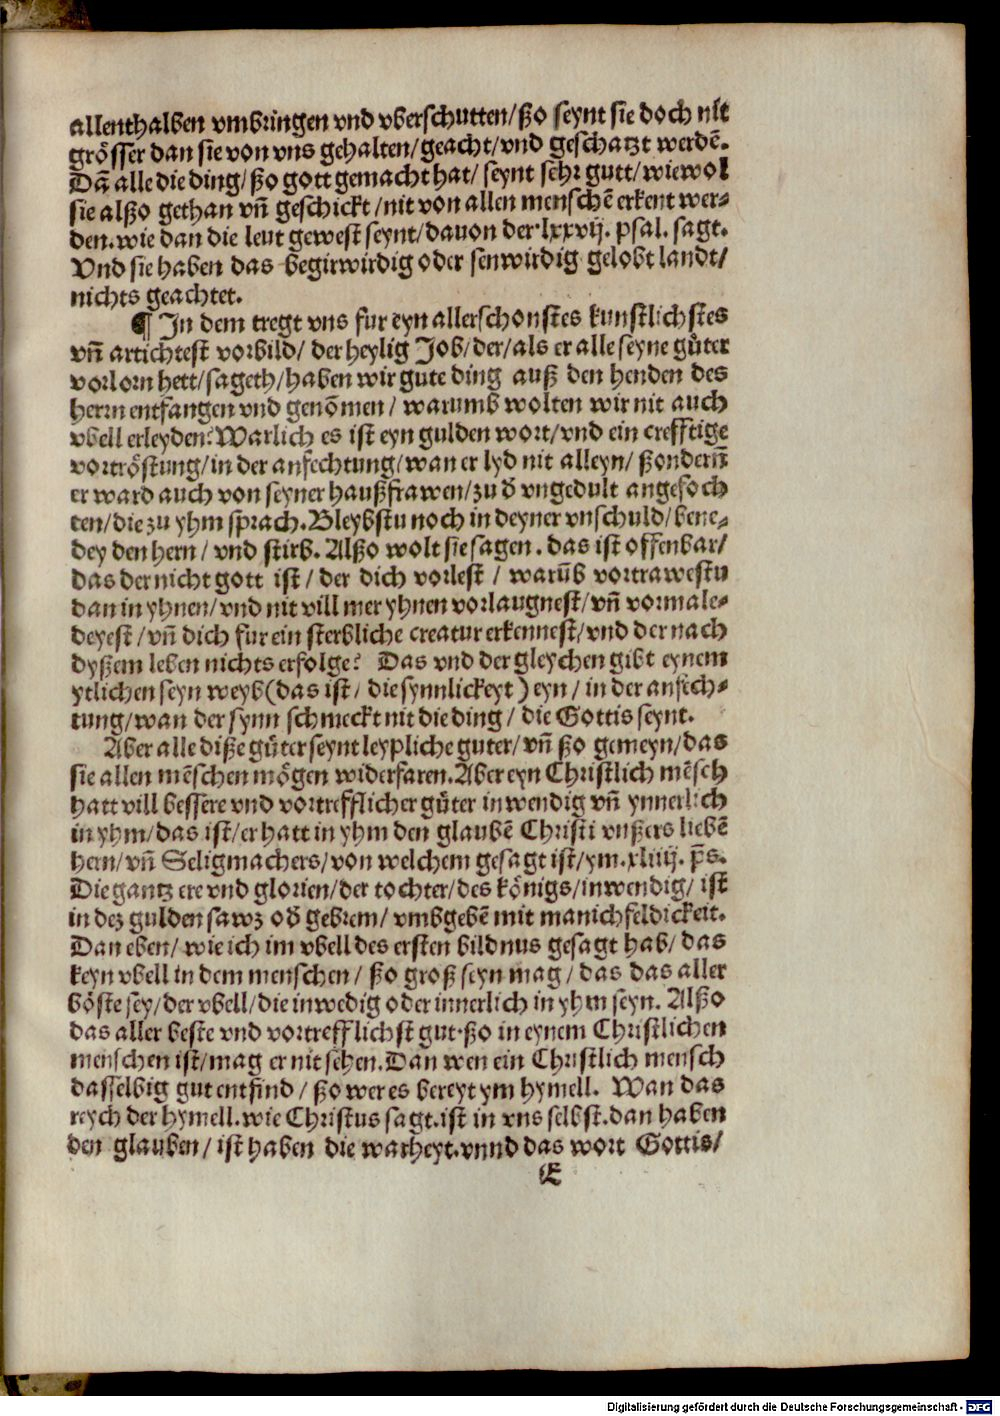 allenthalben vmbringen vnd vberschutten/ ßo seynt sie doch nit
grösser dan sie von vns gehalten/ geacht/ vnd geschatzt werdē.
Dā alle die ding/ ßo gott gemacht hat/ seynt sehr gutt/ wiewol
sie alßo gethan vn̄ geschickt / nit von allen menschē erkent wer⸗
den. wie dan die leut gewest seynt/ dauon der lxxvij. psal. sagt.
Vnd sie haben das begirwirdig oder senwirdig gelobt landt/
nichts geachtet.
¶ In dem tregt vns fur eyn allerschonstes kunstlichstes
vn̄ artichtest vorbild/ der heylig Job/ der/ als er alle seyne gůter
vorlorn hett/ sageth/ haben wir gute ding auß den henden des
herrn entfangen vnd genōmen / warumb wolten wir nit auch
vbell erleyden? Warlich es ist eyn gulden wort/ vnd ein crefftige
vortröstung/ in der anfechtung/ wan er lyd nit alleyn/ ßondern̄
er ward auch von seyner haußfrawen/ zu d̄ vngedult angefoch
ten/ die zu yhm sprach. Bleybstu noch in deyner vnschuld/ bene⸗
dey den hern / vnd stirb. Alßo wolt sie sagen. das ist offenbar/
das der nicht gott ist / der dich vorlest / warūb vortrawestu
dan in yhnen/ vnd nit vill mer yhnen vorlaugnest/ vn̄ vormale⸗
deyest / vn̄ dich fur ein sterbliche creatur erkennest/ vnd der nach
dyßem leben nichts erfolge? Das vnd der gleychen gibt eynem
ytlichen seyn weyb (das ist / die synnlickeyt) eyn / in der anfech⸗
tung/ wan der synn schmeckt nit die ding / die Gottis seynt.
Aber alle diße gůter seynt leypliche guter/ vn̄ ßo gemeyn/ das
sie allen mēschen mögen widerfaren. Aber eyn Christlich mēsch
hatt vill bessere vnd vortrefflicher gůter inwendig vn̄ ynnerlich
in yhm/ das ist/ er hatt in yhm den glaubē Christi vnßers liebē
hern/ vn̄ Seligmachers/ von welchem gesagt ist/ ym. xliiij. p̄s.
Die gantz ere vnd glorien/ der tochter/ des königs/ inwendig/ ist
in dez gulden sawz od̄ gebrem/ vmbgebē mit manichfeldickeit.
Dan eben/ wie ich im vbell des ersten bildnus gesagt hab/ das
keyn vbell in dem menschen / ßo groß seyn mag / das das aller
böste sey/ der vbell/ die inwēdig oder innerlich in yhm seyn. Alßo
das aller beste vnd vortrefflichst gut. ßo in eynem Christlichen
menschen ist/ mag er nit sehen. Dan wen ein Christlich mensch
dasselbig gut entfind / ßo wer es bereyt ym hymell. Wan das
reych der hymell. wie Christus sagt. ist in vns selbst. dan haben
den glauben / ist haben die warheyt. vnnd das wort Gottis/
E
Digitalisierung gefördert durch die Deutsche Forschungsgemeinschaft - DFG